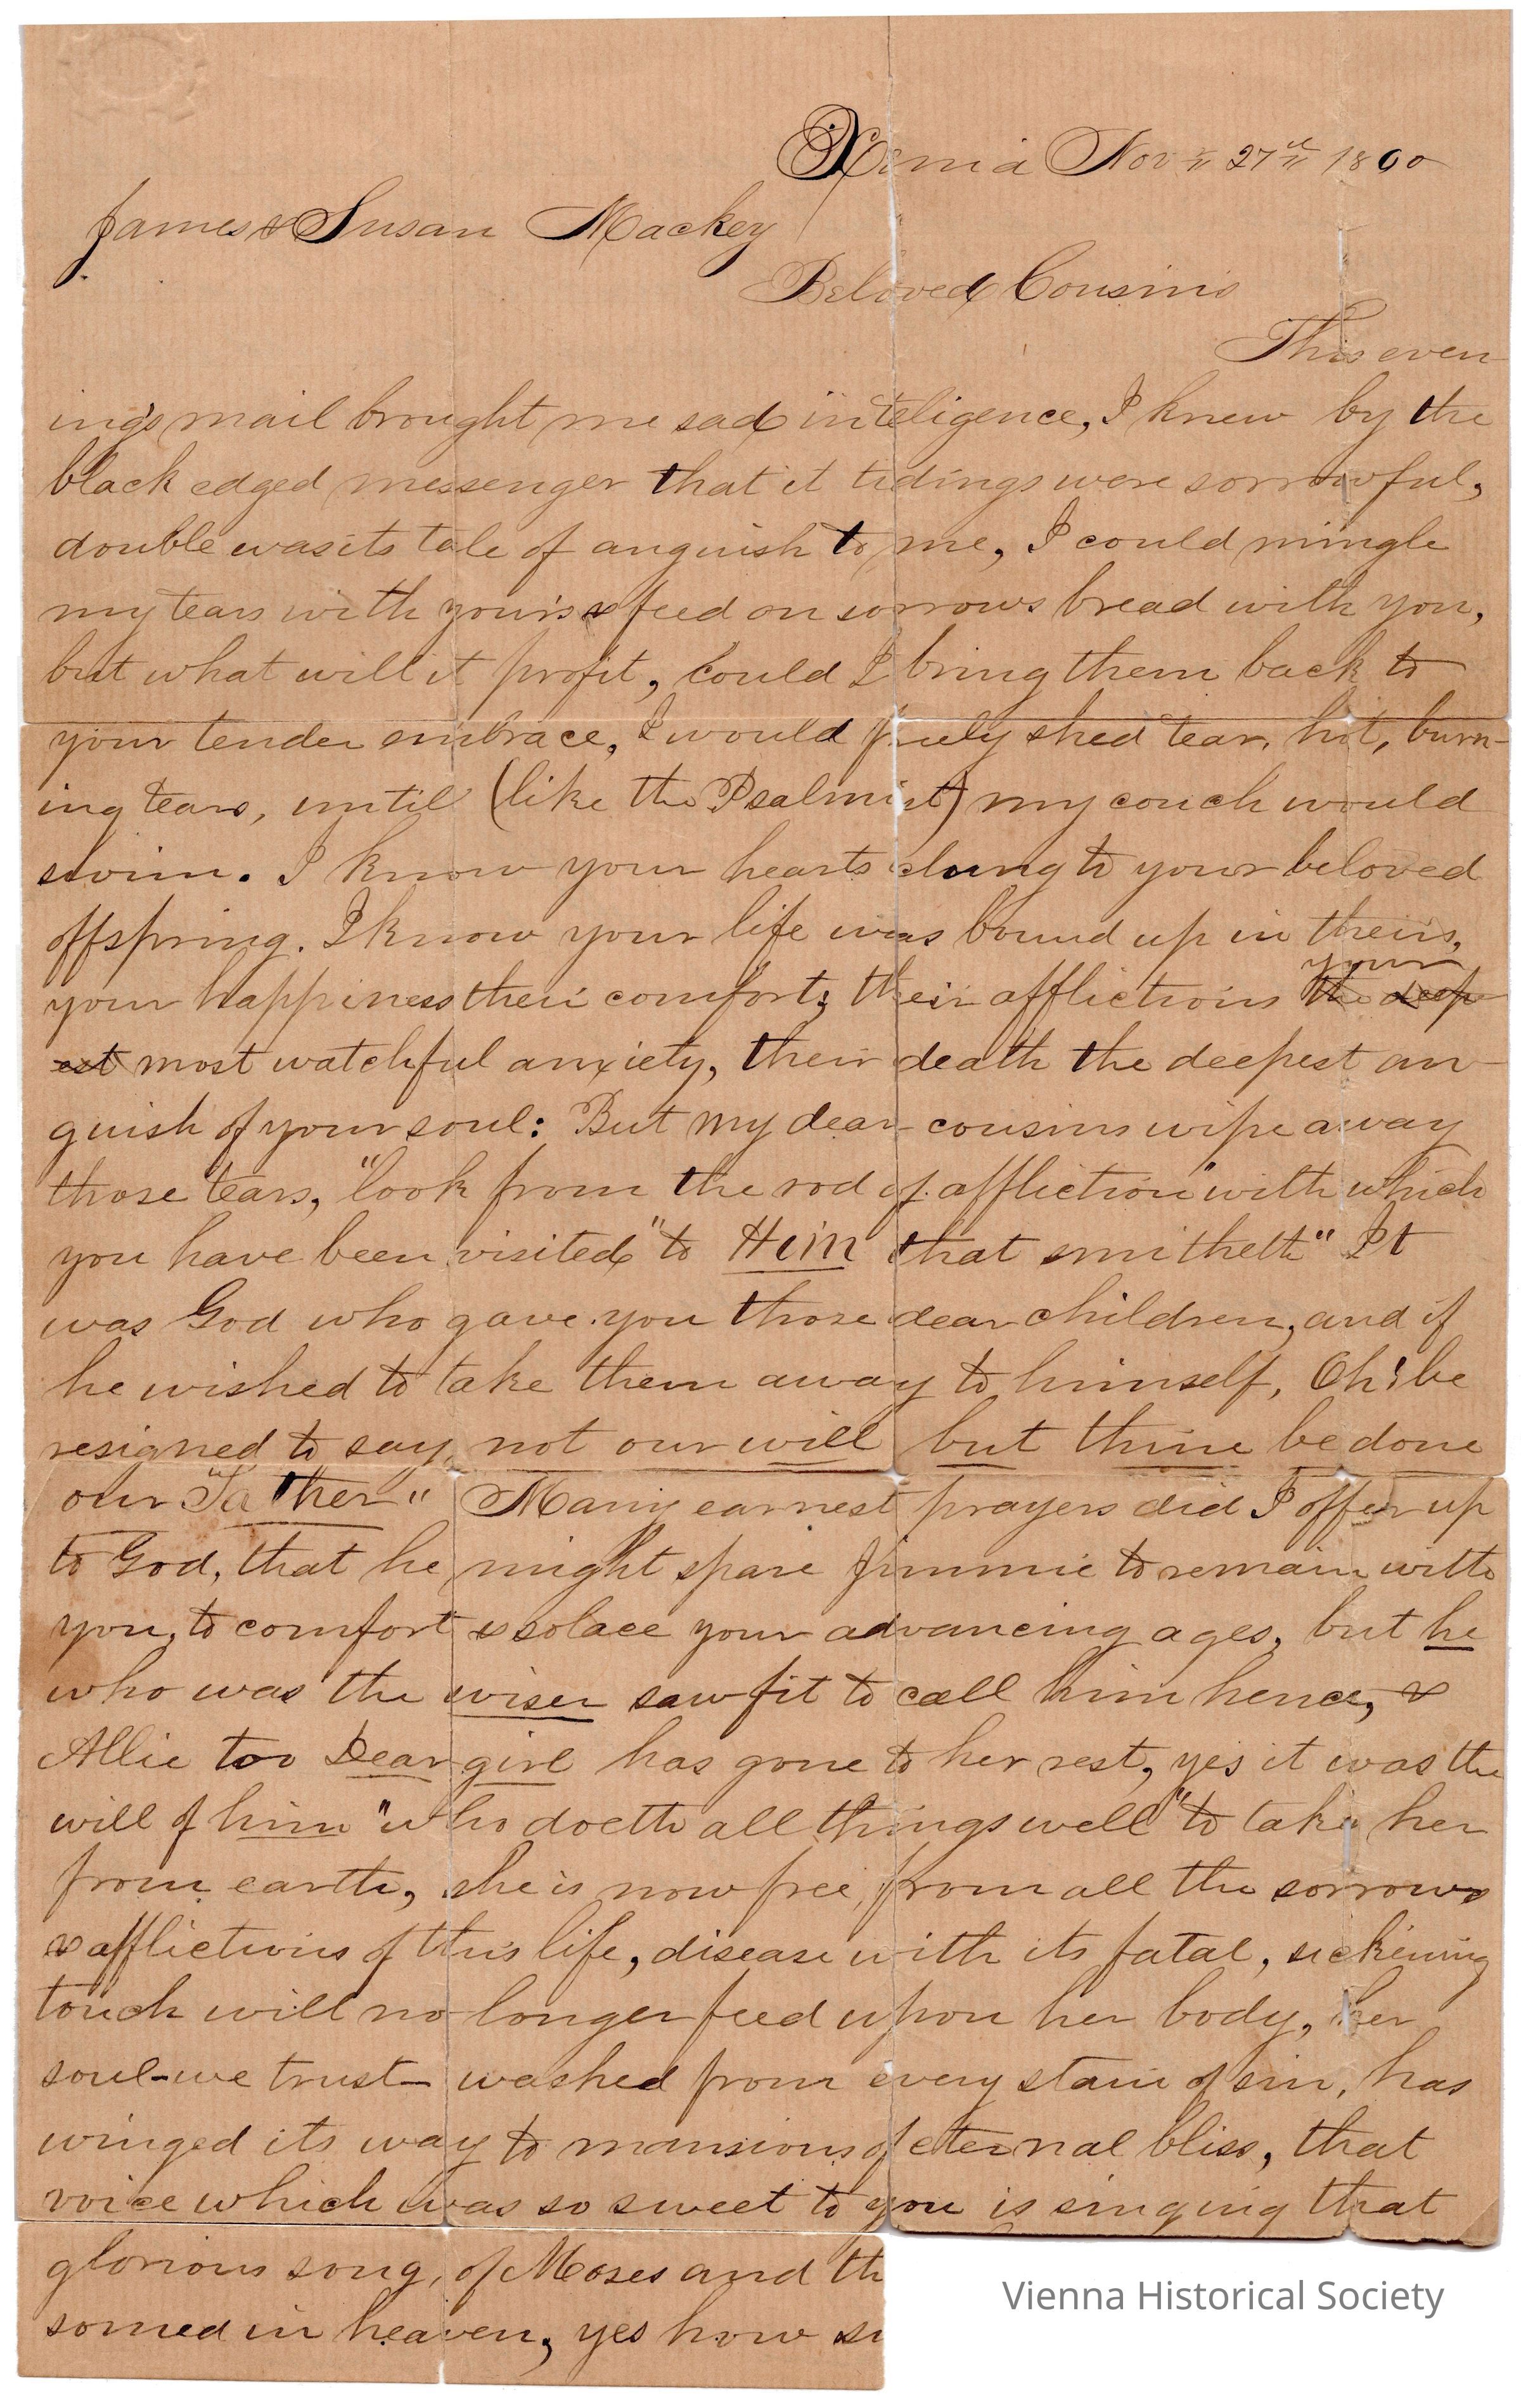 Xenia Nov 27th 1860
James & Susan Mackey
Beloved Cousins
This even-
ing's mail brought me sad inteligence, I knew by the
black edged messenger that it tidings were sorrowful,
double was its tale of anguish to me, I could mingle
my tears with yours & feed on sorrows bread with you,
but what will it profit, could I bring them back to
your tender embrace, I would freely shed tears, hot, burn-
ing tears, until (like the Psalmist) my couch would
swim. I know your hearts clung to your beloved
offspring. I know your life was bound up in theirs,
your
your happiness their comfort; their afflictions the deep-
est most watchful anxiety, their death the deepest an-
guish of your soul: But my dear cousins wipe away
those tears, "look from the rod of affliction" with which
you have been visited "to Him that smitheth" It
was God who gave you those dear children, and if
he wished to take them away to himself, Oh! be
resigned to say, not our will but thine be done
our Father" Many earnest prayers did I offer up
to God, that he might spare Jimmie to remain with
you, to comfort & solace your advancing ages, but he
who was the wiser saw fit to call him hence, &
Allie too Dear girl has gone to her rest, yes it was the
will of him "who doeth all things well" to take her
from earth, she is now free, from all the sorrows
& afflictions of this life, disease with its fatal, sickening
touch will no longer feed upon her body, her
soul - we trust - washed from every stain of sin, has
winged its way to mansions of eternal bliss, that
voice which was so sweet to you is singing that
glorious song, of Moses and th
somed in heaven, yes how
Vienna Historical Society